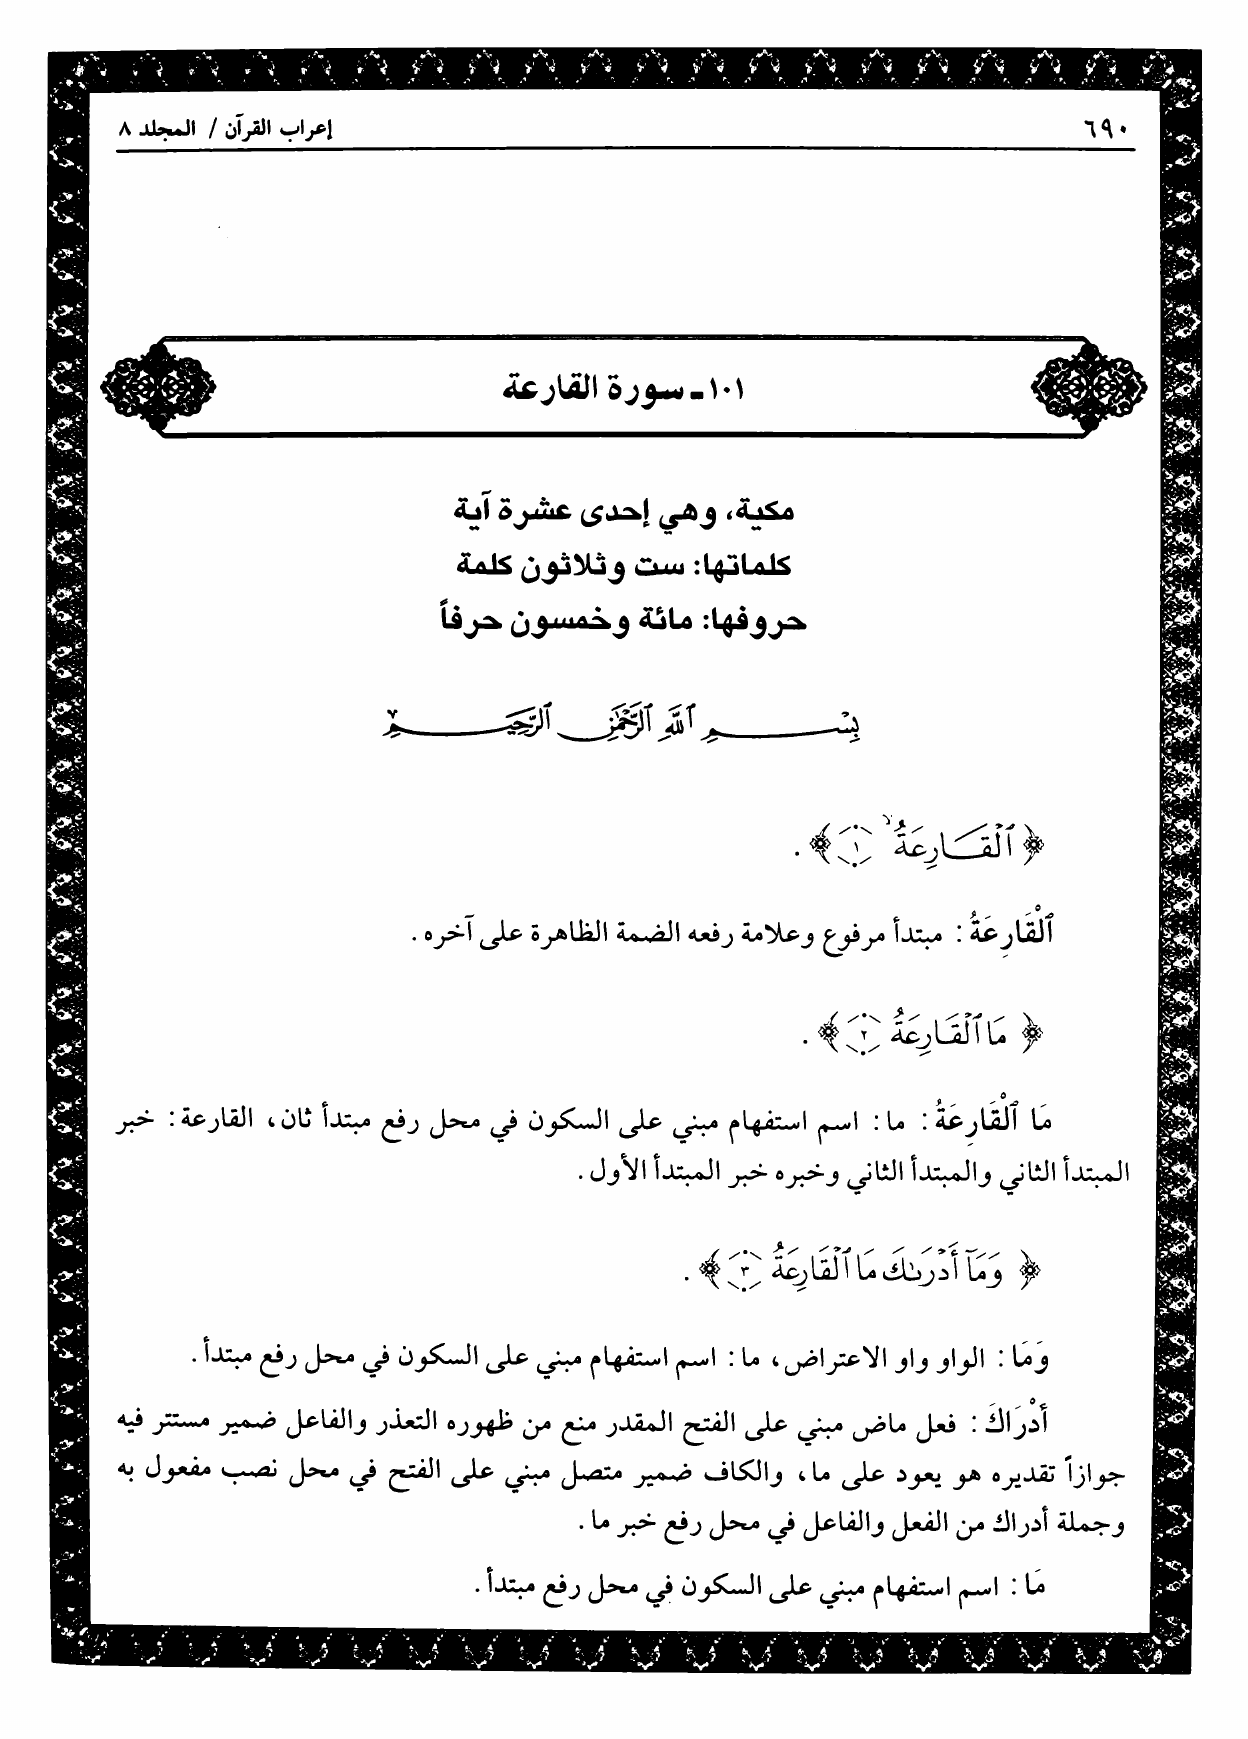 ٦٩٠
إعراب القرآن / المجلد ٨
١٠١ ـ سورة القارعة
مكية، وهي إحدى عشرة آية
كلماتها: ست وثلاثون كلمة
حروفها: مائة وخمسون حرفاً
بِسْمِ ٱللَّهِ ٱلرَّحْمَٰنِ ٱلرَّحِيمِ
﴿ ٱلْقَارِعَةُ ۙ ١ ﴾ .
ٱلْقَارِعَةُ : مبتدأ مرفوع وعلامة رفعه الضمة الظاهرة على آخره .
﴿ مَا ٱلْقَارِعَةُ ٢ ﴾ .
مَا ٱلْقَارِعَةُ : ما : اسم استفهام مبني على السكون في محل رفع مبتدأ ثان، القارعة : خبر
المبتدأ الثاني والمبتدأ الثاني وخبره خبر المبتدأ الأول .
﴿ وَمَآ أَدْرَىٰكَ مَا ٱلْقَارِعَةُ ٣ ﴾ .
وَمَا : الواو واو الاعتراض، ما : اسم استفهام مبني على السكون في محل رفع مبتدأ .
أَدْرَاكَ : فعل ماض مبني على الفتح المقدر منع من ظهوره التعذر والفاعل ضمير مستتر فيه
جوازاً تقديره هو يعود على ما، والكاف ضمير متصل مبني على الفتح في محل نصب مفعول به
وجملة أدراك من الفعل والفاعل في محل رفع خبر ما .
مَا : اسم استفهام مبني على السكون في محل رفع مبتدأ .